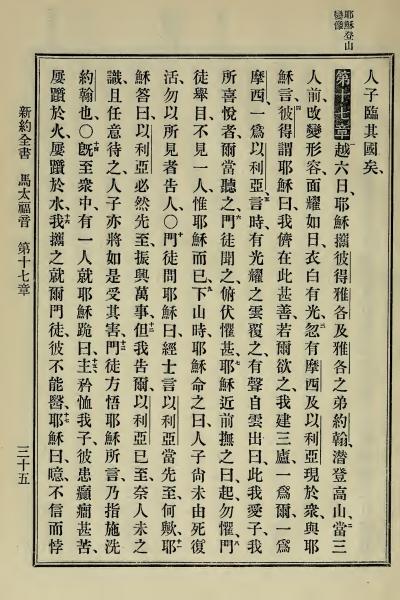 耶穌登山
變像
人子臨其國矣、
第十七章 越六日、耶穌攜彼得雅各及雅各之弟約翰、潛登高山、當三
人前改變形容、面耀如日、衣白有光、忽有摩西及以利亞現於衆、與耶
穌言、彼得謂耶穌曰、我儕在此甚善、若爾欲之、我建三廬、一爲爾、一爲
摩西、一爲以利亞、言時、有光耀之雲覆之、有聲自雲出曰、此我愛子、我
所喜悅者、爾當聽之、門徒聞之、俯伏懼甚、耶穌近前撫之曰、起、勿懼、門
徒舉目、不見一人、惟耶穌而已、下山時、耶穌命之曰、人子尙未由死復
活、勿以所見者告人、〇門徒問耶穌曰、經士言以利亞當先至、何歟、耶
穌答曰、以利亞必然先至、振興萬事、但我告爾、以利亞已至、奈人未之
識、且任意待之、人子亦將如是受其害、門徒方悟耶穌所言、乃指施洗
約翰也、〇旣至衆中、有一人就耶穌跪曰、主、矜恤我子、彼患癲癇甚苦、
屢躓於火、屢躓於水、我攜之就爾門徒、彼不能醫、耶穌曰、噫、不信而悖
新約全書 馬太福音 第十七章 三十五